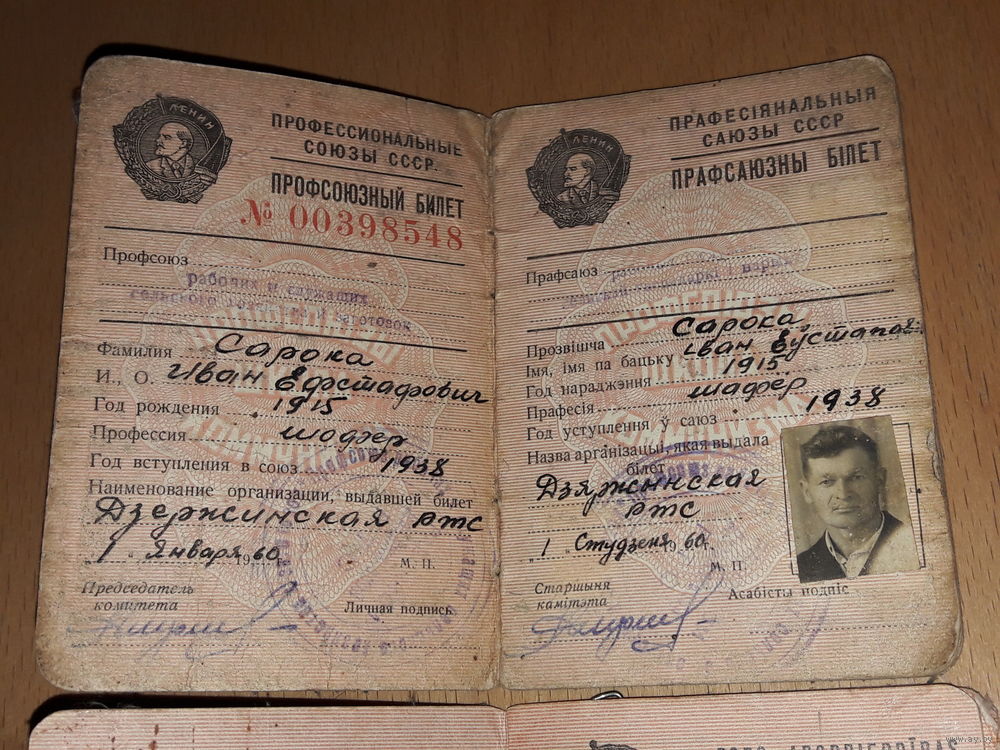 ЛЕНИН
ПРОФЕССИОНАЛЬНЫЕ
СОЮЗЫ СССР.
ПРОФСОЮЗНЫЙ БИЛЕТ
№ 00398548
Профсоюз
рабочих и служащих
сельского хоз и заготовок
Фамилия Сарока
И., О. Иван Евстафович
Год рождения 1915
Профессия шофер
Год вступления в союз 1938
Наименование организации, выдавшей билет
Дзержинская РТС
1 Января 1960 г.
М. П.
Председатель
комитета
Личная подпись
ЛЕНИН
ПРАФЕСІЯНАЛЬНЫЯ
САЮЗЫ СССР
ПРАФСАЮЗНЫ БІЛЕТ
Прафсаюз
Прозвішча Сарока
Імя, імя па бацьку Іван Еўстапав.
Год нараджэння 1915
Прафесія шафёр
Год уступлення ў саюз 1938
Назва арганізацыі, якая выдала
білет
Дзяржынская
РТС
1 Студзеня 1960 г.
М. П.
Старшыня
камітэта
Асабісты подпіс
www.ay.by